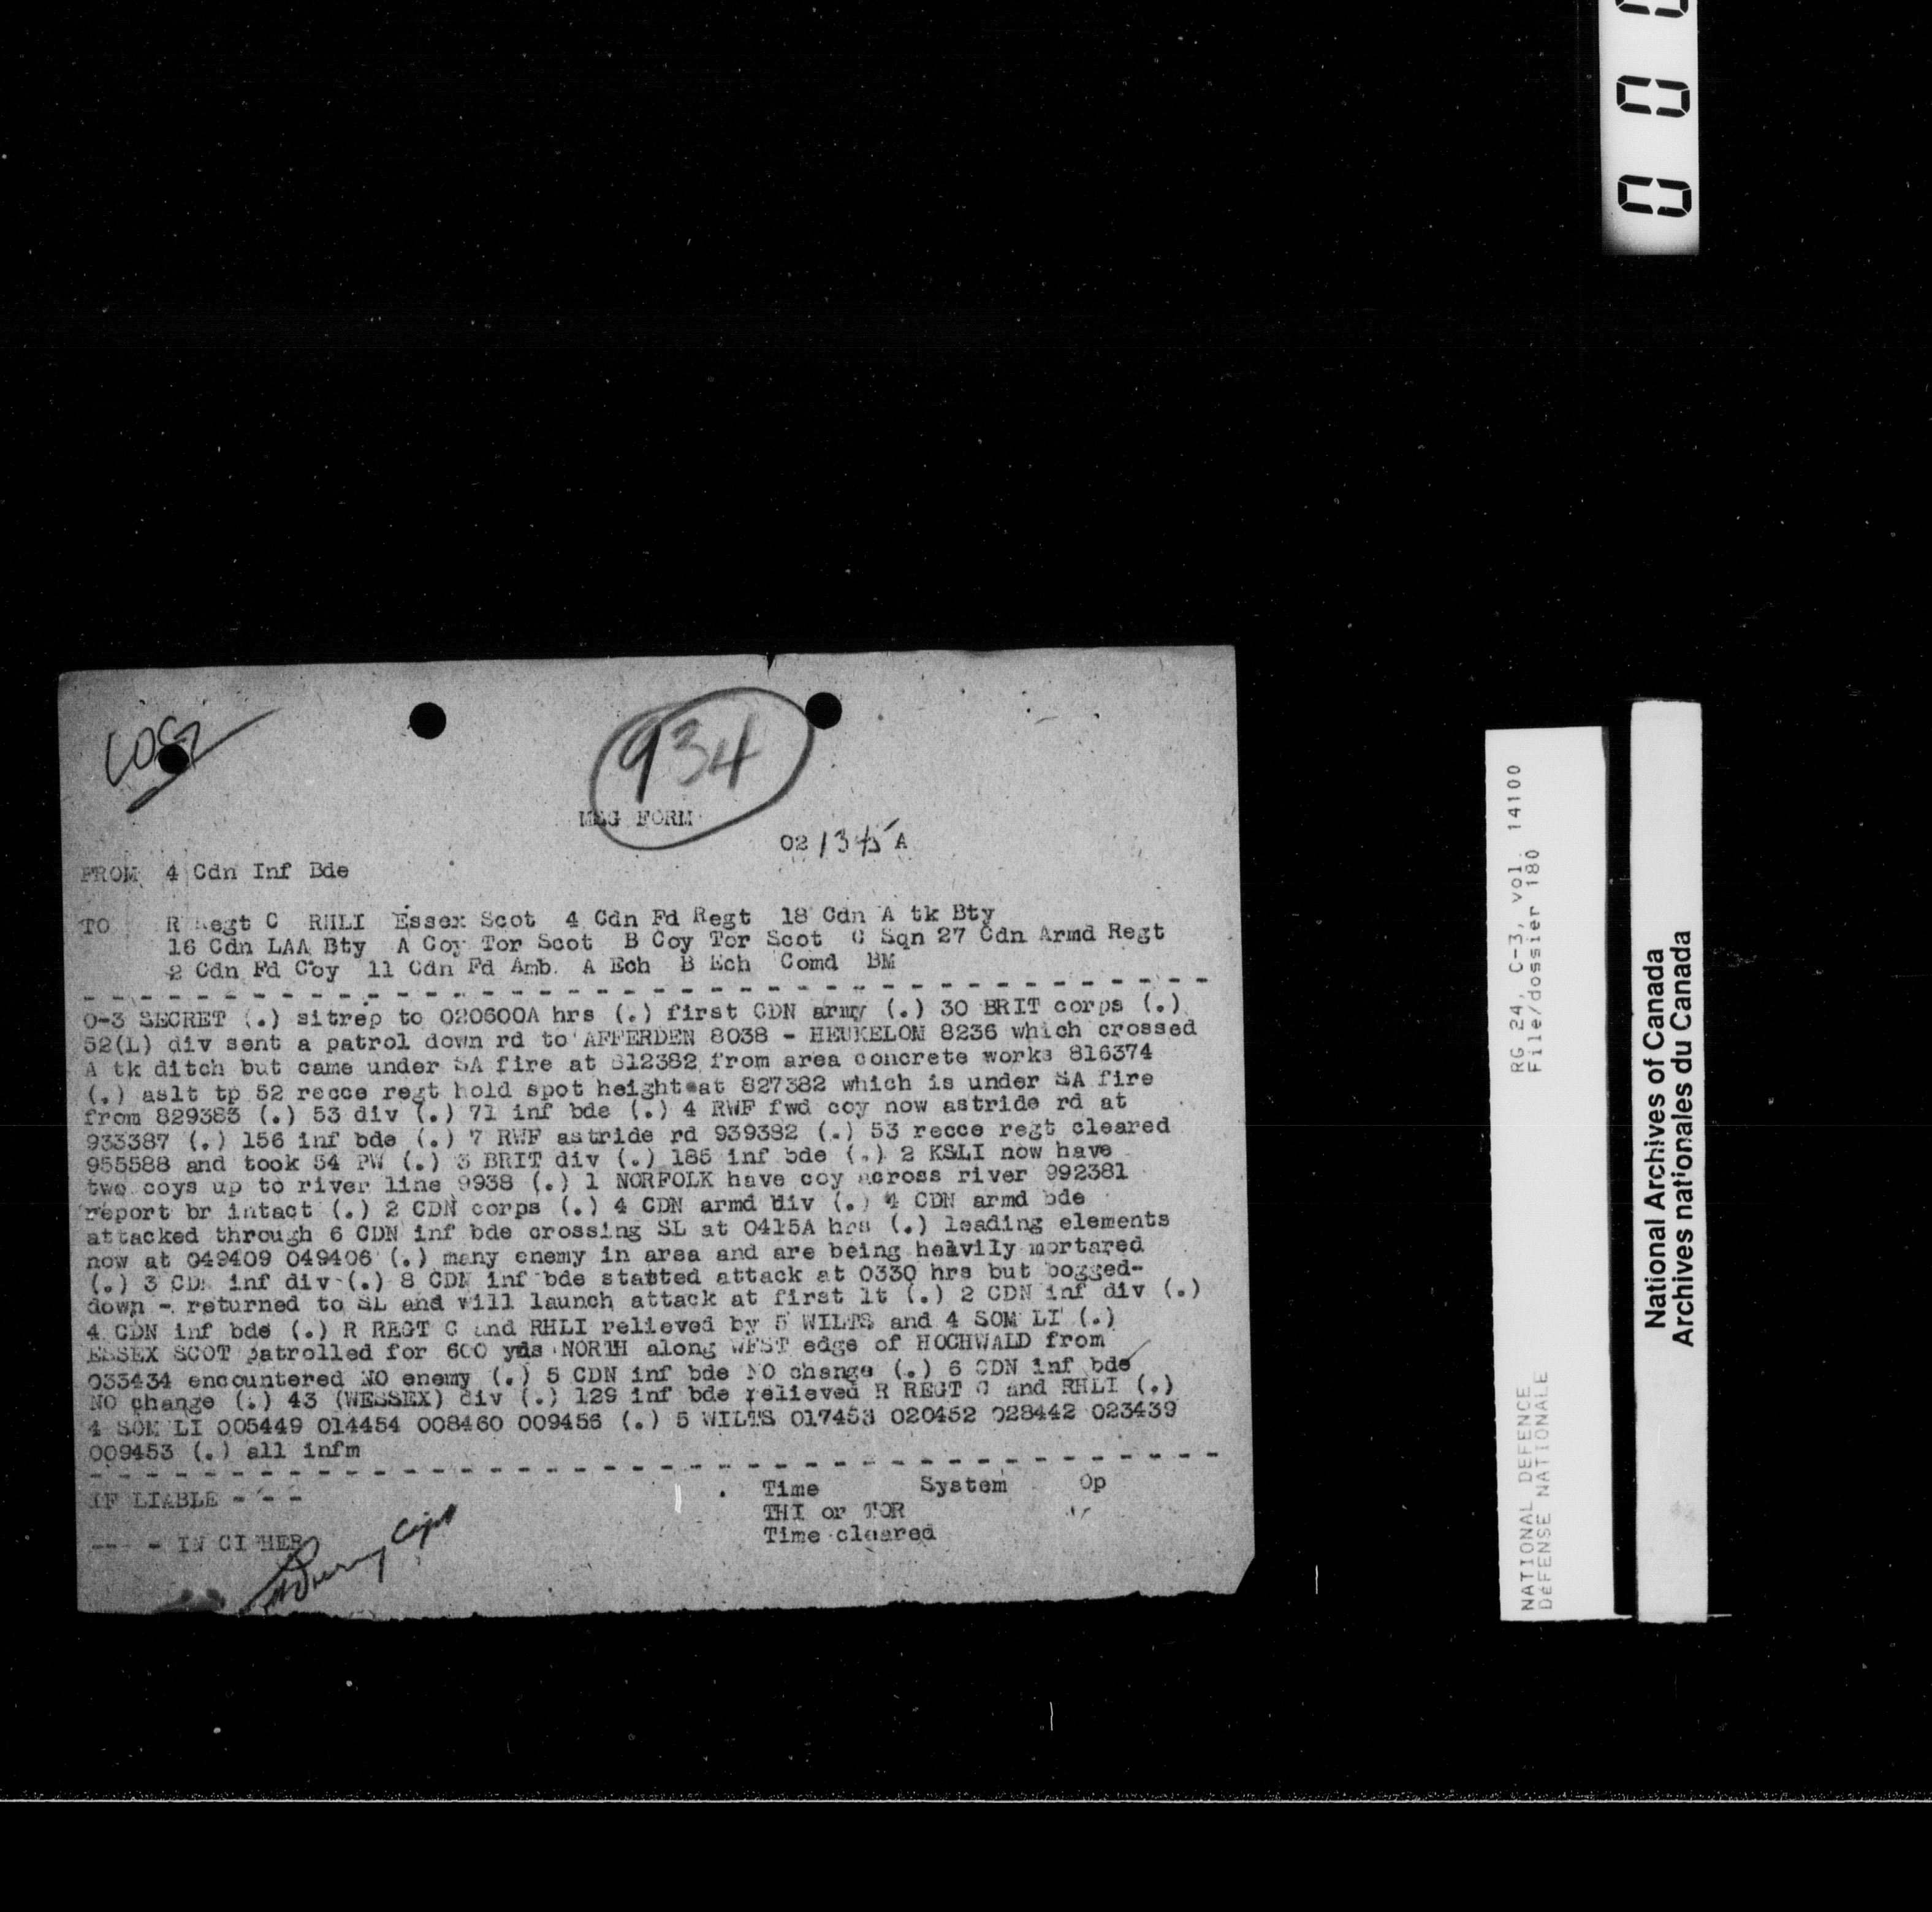 934
MSG FORM
02 1345 A
FROM 4 Cdn Inf Bde
TO R Regt C RHLI Essex Scot 4 Cdn Fd Regt 18 Cdn A tk Bty
16 Cdn LAA Bty A Coy Tor Scot B Coy Tor Scot C Sqn 27 Cdn Armd Regt
2 Cdn Fd Coy 11 Cdn Fd Amb. A Ech B Ech Comd BM
- - - - - - - - - - - - - - - - - - - - - - - - - - - - - - - - - - - - - - - -
O-3 SECRET (.) sitrep to 020600A hrs (.) first CDN army (.) 30 BRIT corps (.)
52(L) div sent a patrol down rd to AFFERDEN 8038 - HEUKELOM 8236 which crossed
A tk ditch but came under SA fire at 812382 from area concrete works 816374
(.) aslt tp 52 recce regt hold spot height at 827382 which is under SA fire
from 829383 (.) 53 div (.) 71 inf bde (.) 4 RWF fwd coy now astride rd at
933387 (.) 156 inf bde (.) 7 RWF astride rd 939392 (.) 53 recce regt cleared
955588 and took 54 PW (.) 3 BRIT div (.) 185 inf bde (.) 2 KSLI now have
two coys up to river line 9938 (.) 1 NORFOLK have coy across river 992381
report br intact (.) 2 CDN corps (.) 4 CDN armd div (.) 4 CDN armd bde
attacked through 6 CDN inf bde crossing SL at 0415A hrs (.) leading elements
now at 049409 049406 (.) many enemy in area and are being heavily mortared
(.) 3 CDN inf div (.) 8 CDN inf bde statted attack at 0330 hrs but bogged-
down - returned to SL and will launch attack at first lt (.) 2 CDN inf div (.)
4 CDN inf bde (.) R REGT C and RHLI relieved by 5 WILTS and 4 SOM LI (.)
ESSEX SCOT patrolled for 600 yds NORTH along WEST edge of HOCHWALD from
033434 encountered NO enemy (.) 5 CDN inf bde NO change (.) 6 CDN inf bde
NO change (.) 43 (WESSEX) div (.) 129 inf bde relieved R REGT C and RHLI (.)
4 SOM LI 005449 014454 008460 009456 (.) 5 WILTS 017453 020452 028442 023439
009453 (.) all infm
- - - - - - - - - - - - - - - - - - - - - - - - - - - - - - - - - - - - - - - -
IF LIABLE - - - Time System Op
THI or TOR
--- - IN CIPHER Time cleared
Capt
0 0 0
RG 24, C-3, vol. 14100
File/dossier 180
NATIONAL DEFENCE
DéFENSE NATIONALE
National Archives of Canada
Archives nationales du Canada